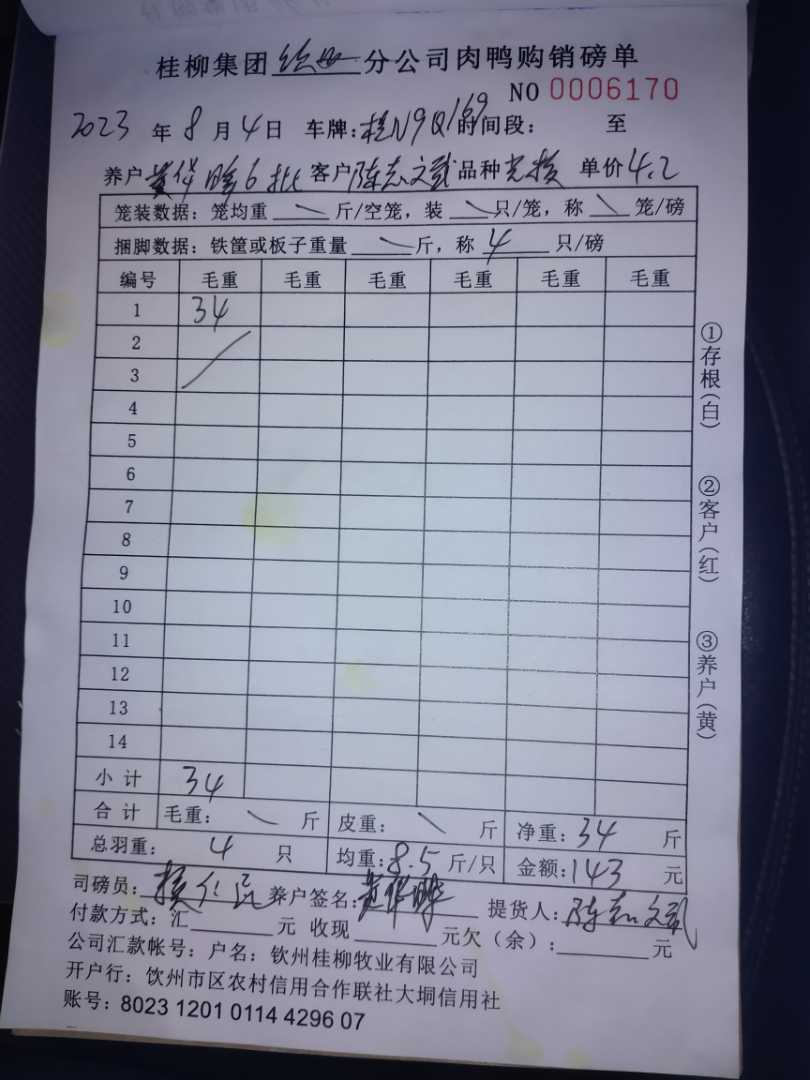 桂柳集团 分公司肉鸭购销磅单
NO 0006170
2023 年 8 月 4 日 车牌:桂N9Q169 时间段: 至
养户 黄华 6批 客户 陈志文武 品种 单价 4.2
笼装数据:笼均重 \ 斤/空笼,装 \ 只/笼,称 \ 笼/磅
捆脚数据:铁筐或板子重量 \ 斤,称 4 只/磅
编号 毛重 毛重 毛重 毛重 毛重 毛重
1 34
2
3
4
5
6
7
8
9
10
11
12
13
14
小 计 34
合 计 毛重: \ 斤 皮重: \ 斤 净重:34 斤
总羽重: 4 只 均重:8.5 斤/只 金额:143 元
司磅员: 养户签名:黄华 提货人:陈志文武
付款方式:汇 元 收现 元欠(余): 元
公司汇款帐号:户名:钦州桂柳牧业有限公司
开户行:饮州市区农村信用合作联社大垌信用社
账号:8023 1201 0114 4296 07
①存根(白)
②客户(红)
③养户(黄)